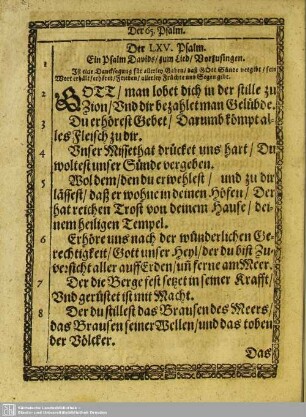 Der 65. Psalm.
Der LXV. Psalm.
Ein Psalm Davids / zum Lied / Vorzusingen.
Ist eine Dancksagung für allerley Gaben / daß GOtt Sünde vergibt / sein
Wort erhält / erhöret / Frieden / allerley Früchte und Segen gibt.
2 GOTT / man lobet dich in der stille zu
Zion / Vnd dir bezahlet man Gelübde.
3 Du erhörest Gebet / Darumb kömpt al-
les Fleisch zu dir.
4 Vnser Missethat drücket uns hart / Du
woltest unser Sünde vergeben.
5 Wol dem / den du erwehlest / und zu dir
lässest / daß er wohne in deinen Höfen / Der
hat reichen Trost von deinem Hause / dei-
nem heiligen Tempel.
6 Erhöre uns nach der wünderlichen Ge-
rechtigkeit / Gott unser Heyl / der du bist Zu-
versicht aller auff Erden / uñ ferne am Meer.
7 Der die Berge fest setzt in seiner Krafft /
Vnd gerüstet ist mit Macht.
8 Der du stillest das Brausen des Meers /
das Brausen seiner Wellen / und das toben
der Völcker.
Das